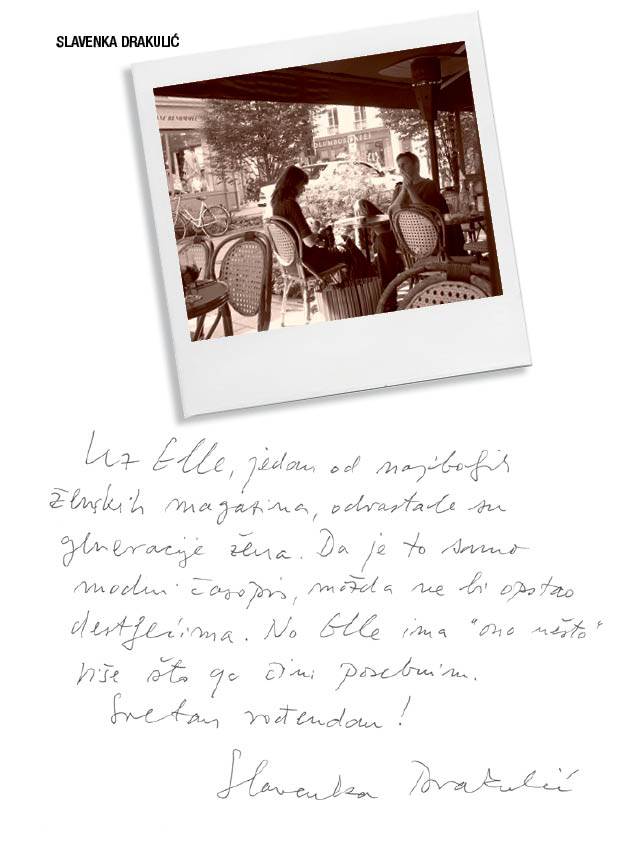 SLAVENKA DRAKULIĆ
OLUMBUS
Uz Elle, jedan od najboljih
ženskih magazina, odrastale su
generacije žena. Da je to samo
modni časopis, možda ne bi opstao
desetljećima. No Elle ima "ono nešto"
više što ga čini posebnim.
Sretan rođendan!
Slavenka Drakulić